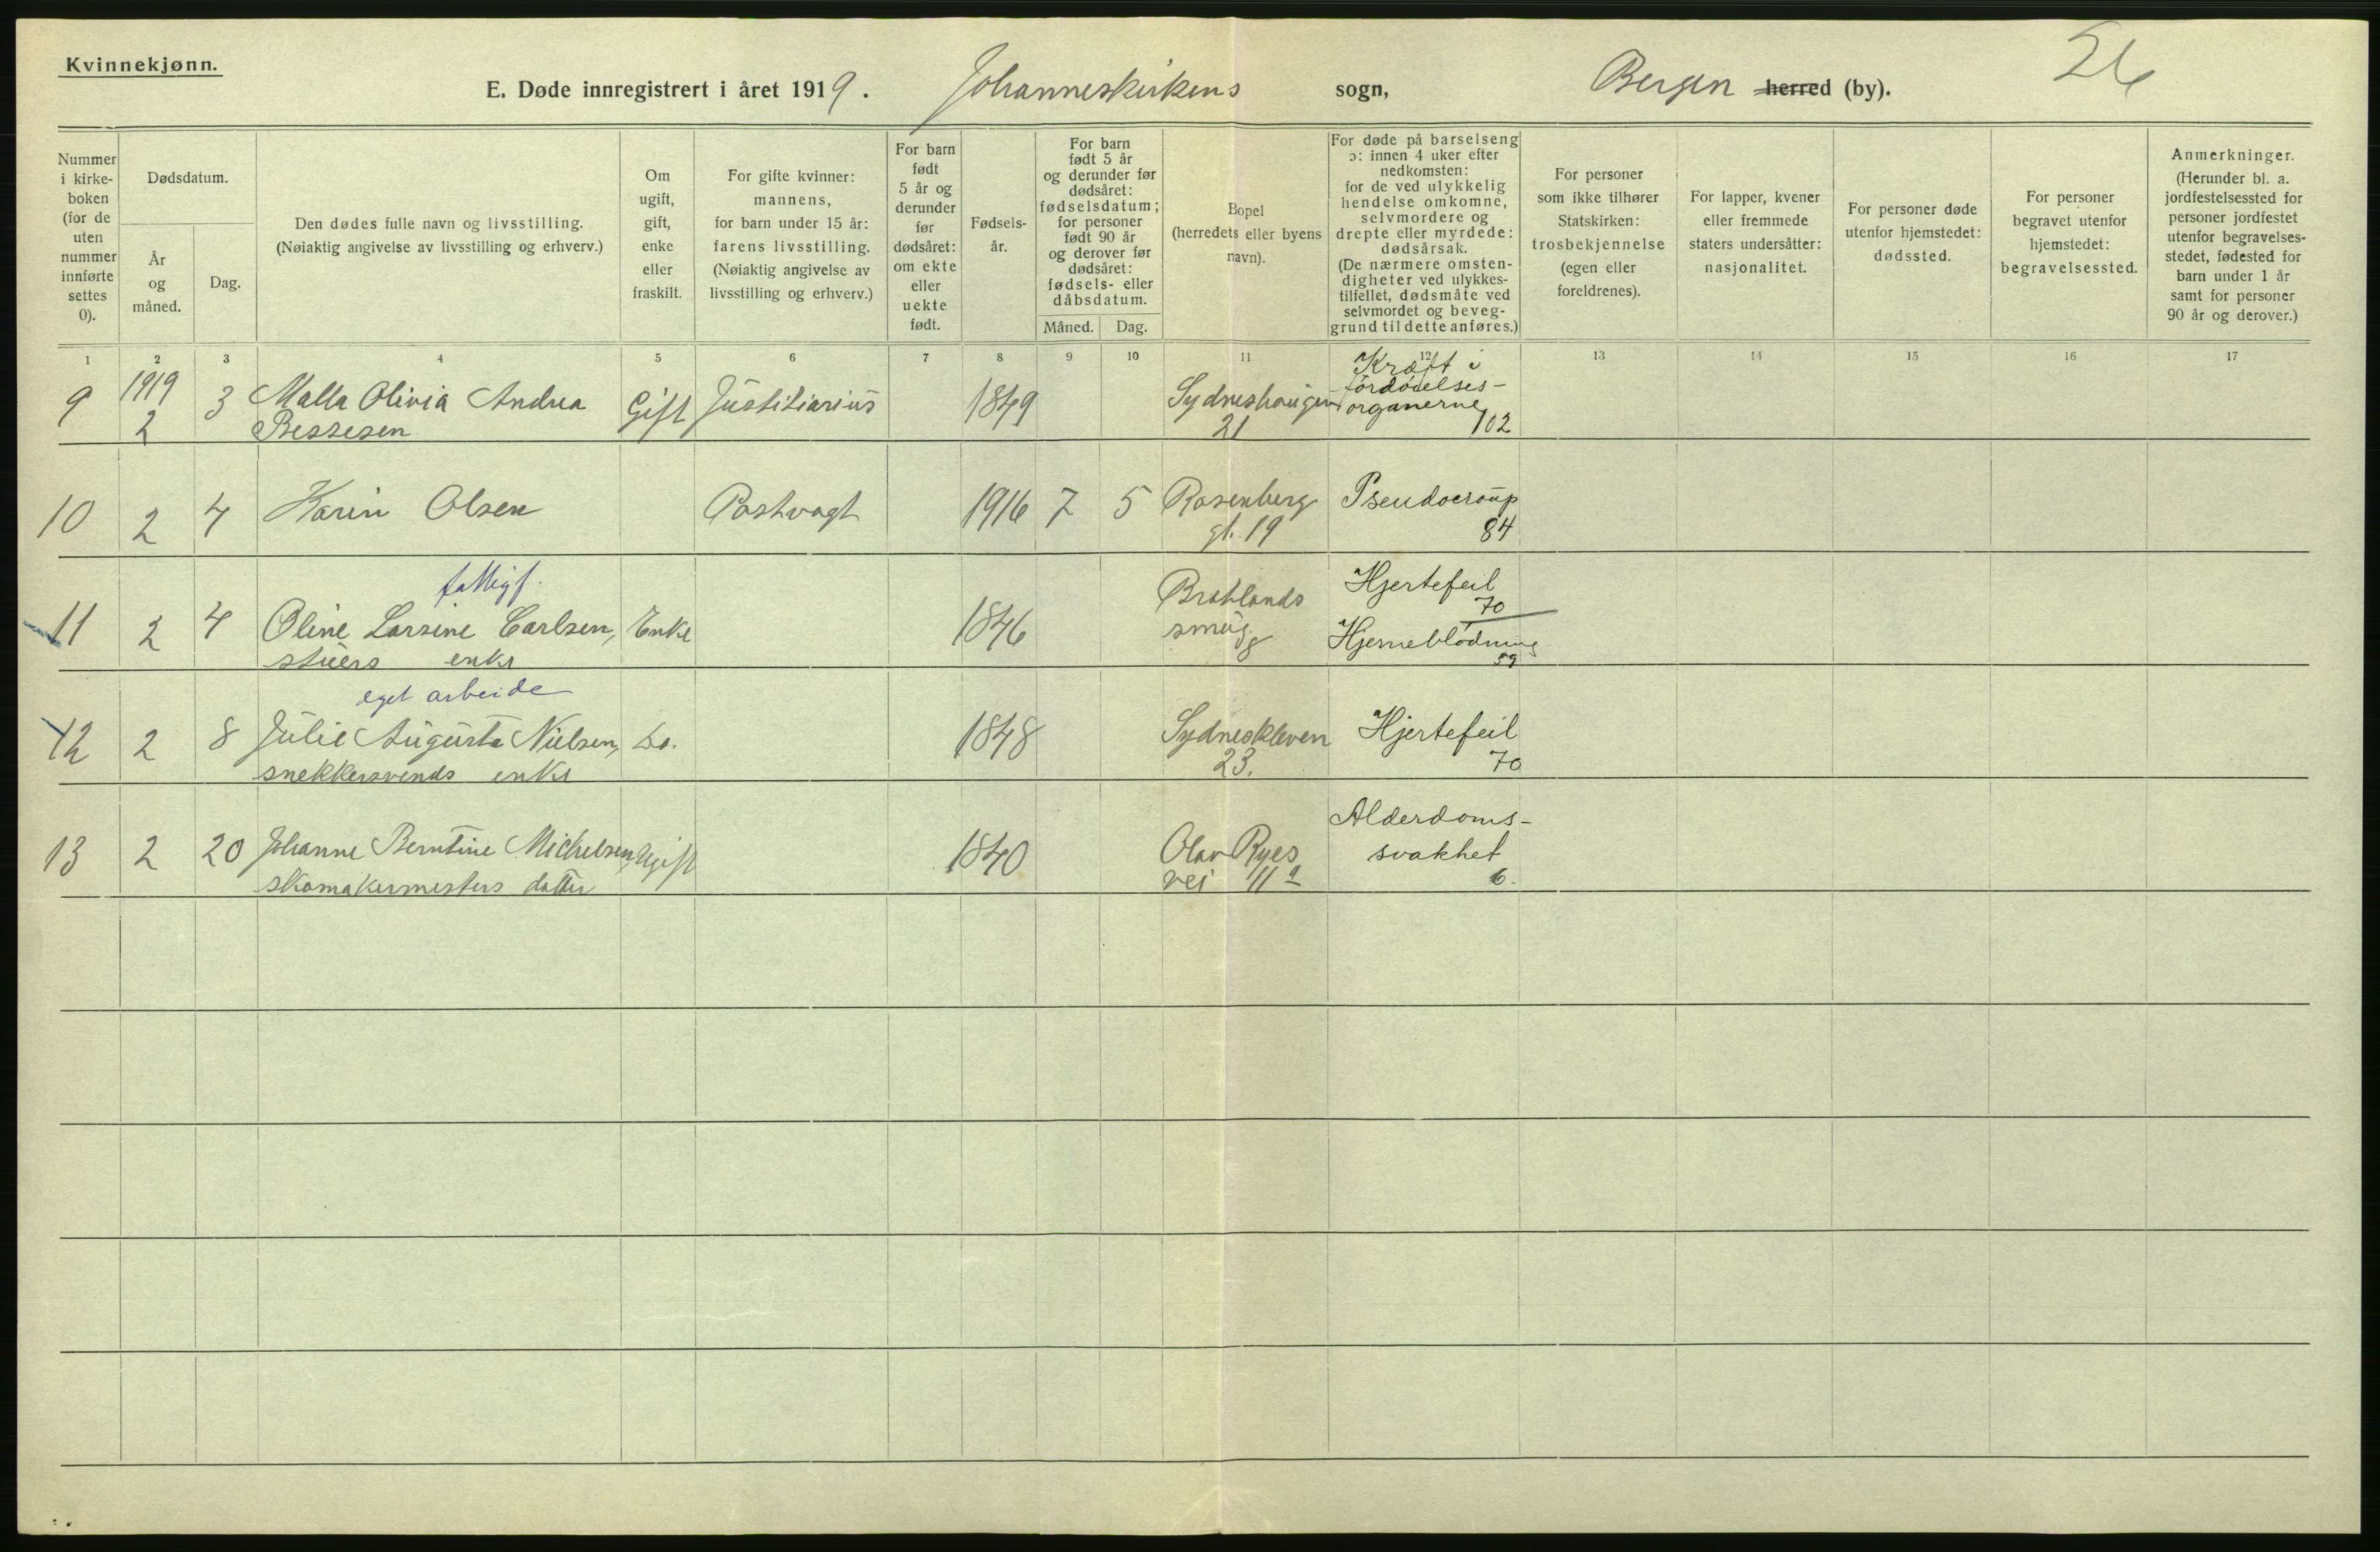 Kvinnekjønn.
E. Døde innregistrert i året 1919. Johanneskirkens sogn, Bergen herred (by).
26
Nummer i kirke- boken (for de uten nummer innførte settes 0).
Dødsdatum.
År og måned.
Dag.
Den dødes fulle navn og livsstilling.
(Nøiaktig angivelse av livsstilling og erhverv.)
Om ugift, gift, enke eller fraskilt.
For gifte kvinner: mannens, for barn under 15 år: farens livsstilling. (Nøiaktig angivelse av livsstilling og erhverv.)
For barn født 5 år og derunder før dødsåret: om ekte eller uekte født.
Fødsels- år.
For barn født 5 år og derunder før dødsåret: fødselsdatum; for personer født 90 år og derover før dødsåret: fødsels- eller dåbsdatum.
Måned. Dag.
Bopel (herredets eller byens navn).
For døde på barselseng ɔ: innen 4 uker efter nedkomsten: for de ved ulykkelig hendelse omkomne, selvmordere og drepte eller myrdede: dødsårsak. (De nærmere omsten- digheter ved ulykkes- tilfellet, dødsmåte ved selvmordet og beveg- grund til dette anføres.)
For personer som ikke tilhører Statskirken: trosbekjennelse (egen eller foreldrenes).
For lapper, kvener eller fremmede staters undersåtter: nasjonalitet.
For personer døde utenfor hjemstedet: dødssted.
For personer begravet utenfor hjemstedet: begravelsessted.
Anmerkninger. (Herunder bl. a. jordfestelsessted for personer jordfestet utenfor begravelses- stedet, fødested for barn under 1 år samt for personer 90 år og derover.)
1 2 3 4 5 6 7 8 9 10 11 12 13 14 15 16 17
9 1919 2 3 Malla Olivia Andrea Bessesen Gift Justitiarius 1849 Sydneshaugen 21 Kræft i fordøielses- organerne 102
10 2 4 Karin Olsen Postvagt 1916 7 5 Rosenberg gt. 19 Pseudocroup 84
fattigf.
11 2 4 Oline Larsine Carlsen, stuers enke Enke 1846 smug 8 Hjertefeil 70 Hjerneblødning 59
eget arbeide
12 2 8 Julie Augusta Nielsen, snekkersvends enke Do. 1848 Sydneskleven 23. Hjertefeil 70
13 2 20 Johanne Berntine Michelsen, skomakermesters datter Ugift 1840 Olav Ryes vei 11a Alderdoms- svakhet 6.